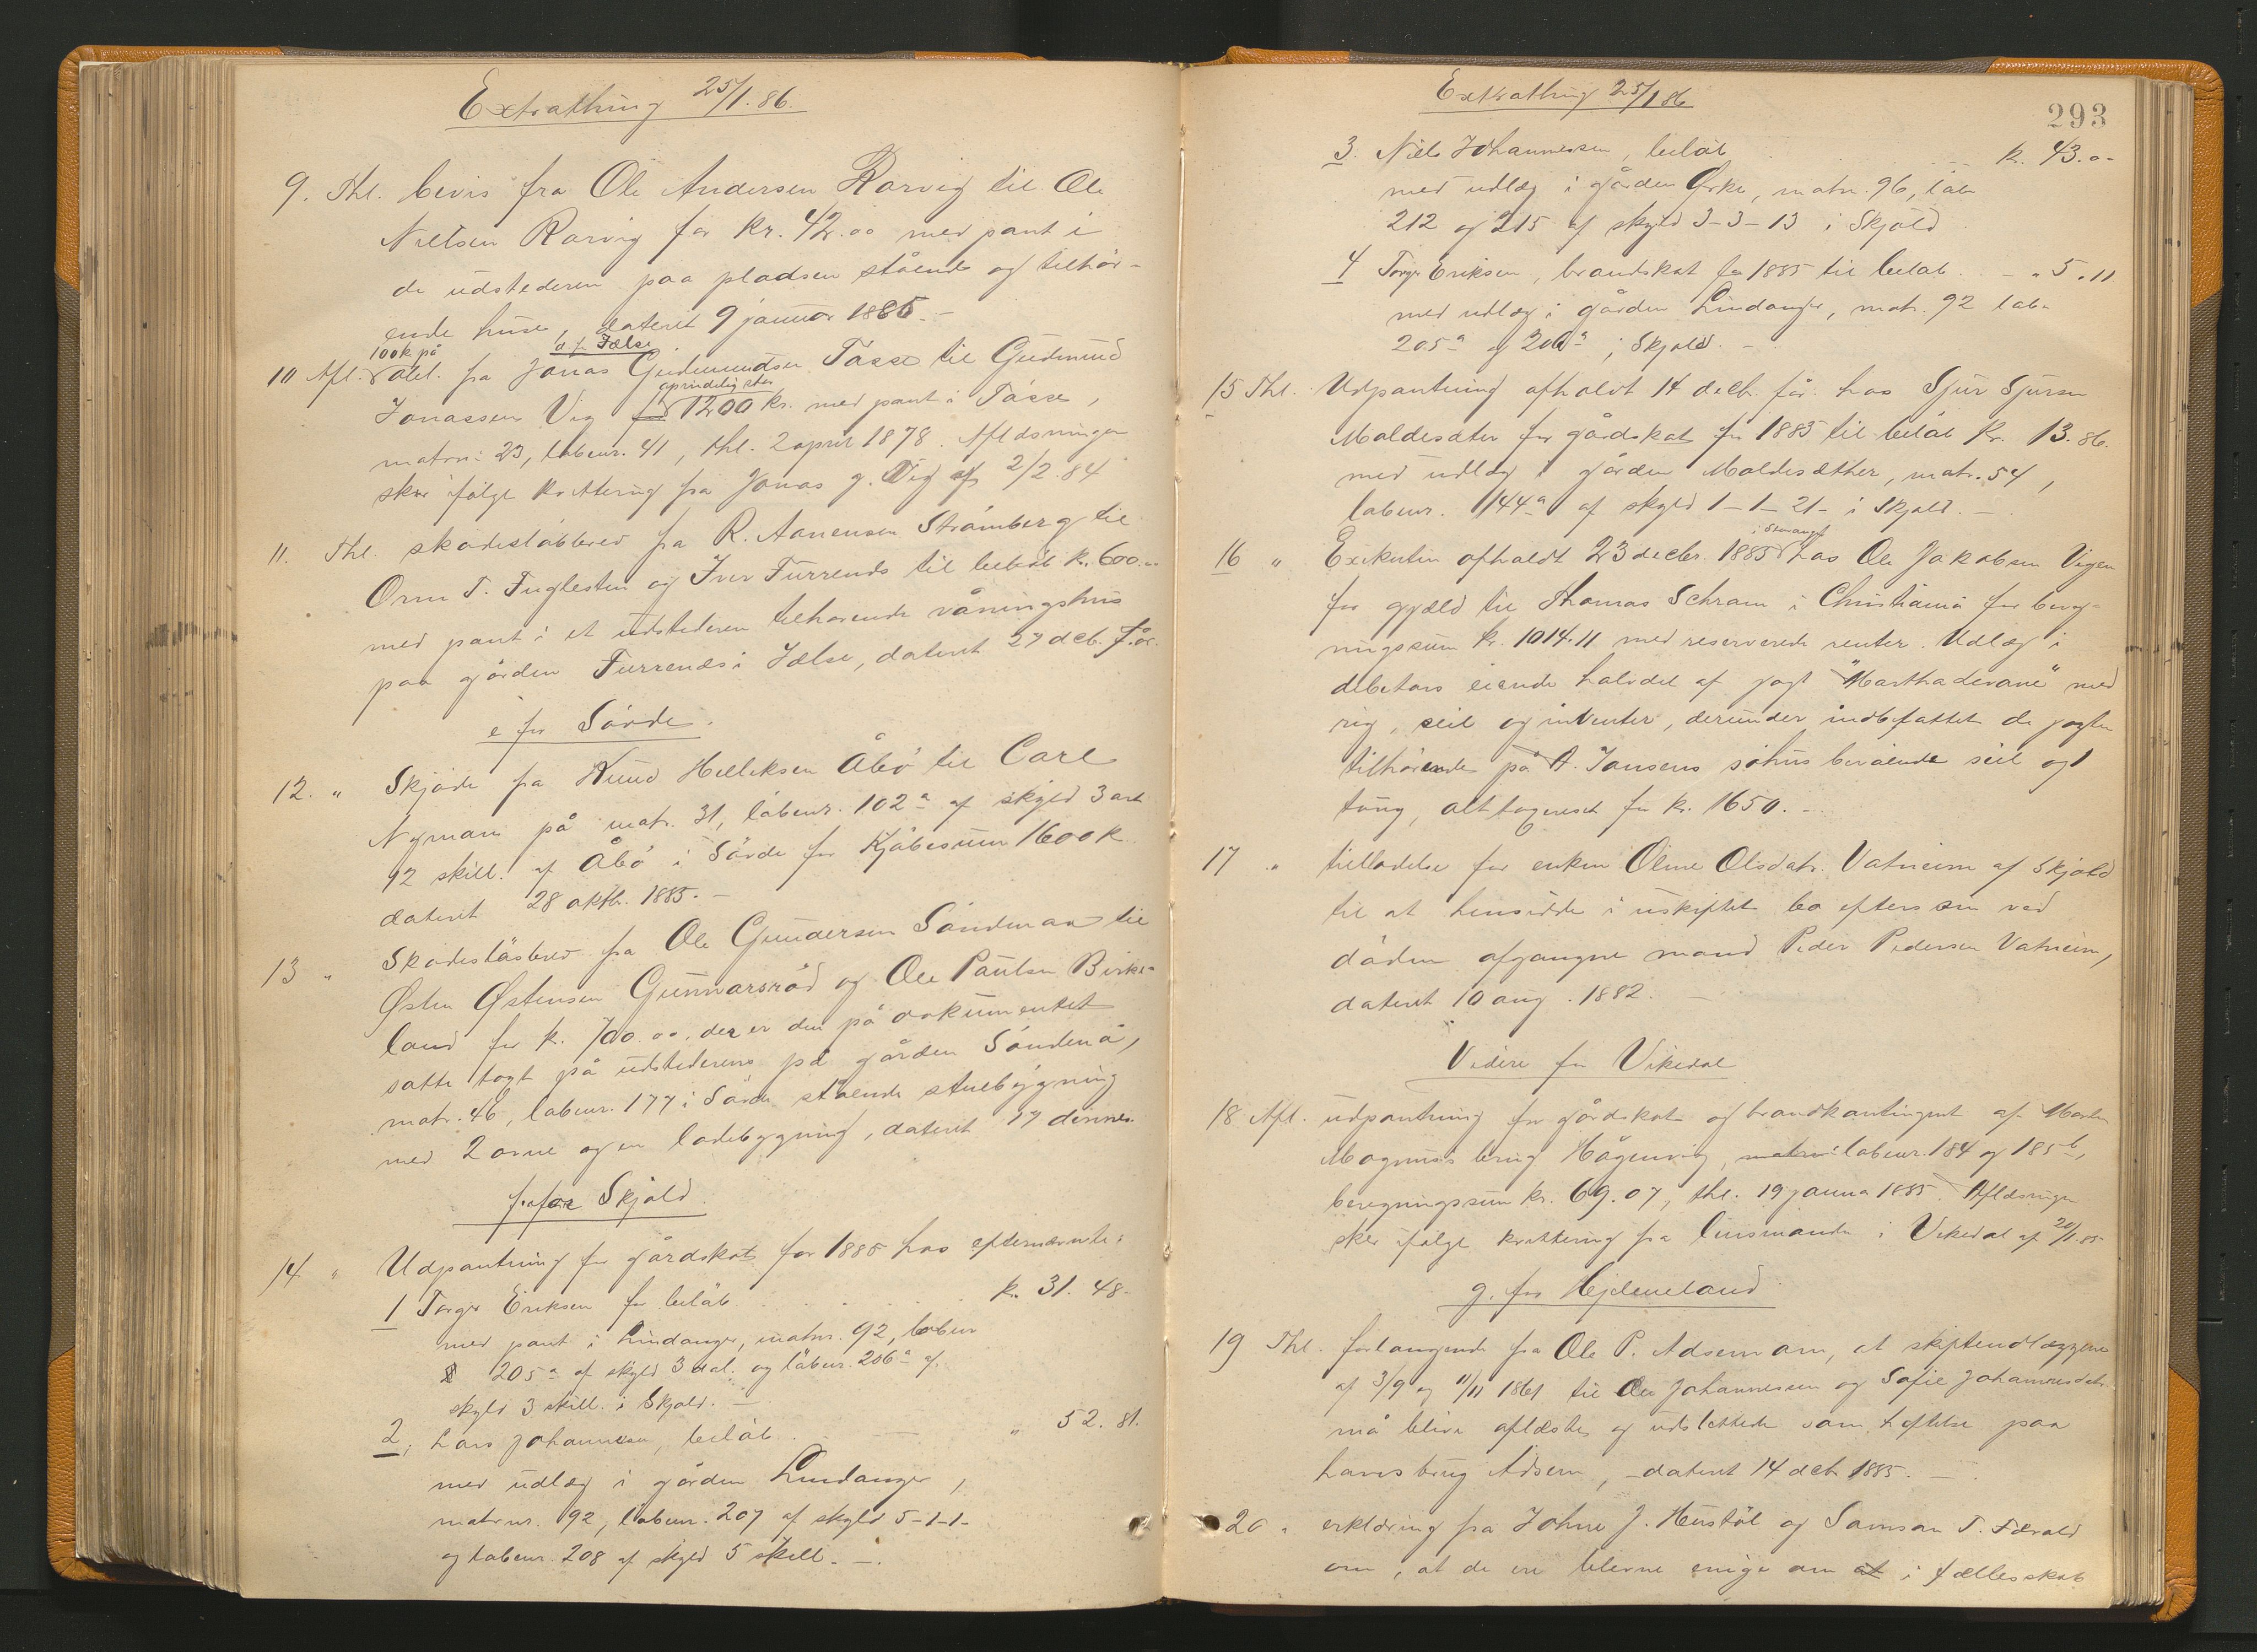 Extrathing 25/1.86.
9. Thl. bevis fra Ole Andersen Rørvig til Ole
Nielsen Rørvig for kr. 42.00 med pant i
de udstederen paa pladsen stående og tilhør-
ende huse, dateret 9 januar 1886.-
d. f. Jælse
100 k på
10 Afl. obl. fra Jonas Gudmundsen Tásse til Gudmund
oprindelig stor
Jonassen Vig for 1200 kr. med pant i Tásse,
matrn: 23, løbenr. 41, thl. 2 april 1878. Aflæsningen
sker ifølge kvittering fra Jonas G. Vig af 2/2.84
11. Thl. skadesløsbrev fra R. Aanensen Strømberg til
Orm T. Fuglesten og Iver Furrenæs til beløb k. 600..
med pant i et udstederen tilhørende våningshus
paa gården Furrenæs i Jælse, dateret 27 dcb. f.år.
e for Søvde.
12. " Skjøde fra Knud Helliksen Åbø til Carl
Nyman på matr. 31, løbenr. 102ª af skyld 3 ort
12 skill. af Åbø i Søvde for Kjøbesum 1600 k.
dateret 28 oktb. 1885.-
13 " Skadesløsbrev fra Ole Gundersen Søndenaa til
Østen Østensen Gunnarsrød og Ole Paulsen Birke-
land for k. 700.00, der er den på dokumentet
satte togt på udstederens på gården Søndenå,
matr. 46, løbenr. 177 i Søvde stående stuebygning
med 2 ovne og en ladebygning, dateret 17 dennes.
f. for Skjold.
14 " Udpantning for gårdskat for 1885 hos efternævnte:
1 Torger Eriksen for beløb k. 31. 48.
med pant i Lindanger, matrnr. 92, løbenr
205ª af skyld 3 dal. og løbenr. 206ª af
skyld 3 skill. i Skjold.-
2. Lars Johannesen, beløb " 52. 81.
med udlæg i gården Lindanger,
matrnr. 92, løbenr. 207 af skyld 5-1-1-
og løbenr. 208 af skyld 5 skill.-.
Extrathing 25/1 86
293
3. Niels Johannessen, beløb k. 43.0-
med udlæg i gården Yrke, matn. 96, løbn
212 og 215 af skyld 3-3-13 i Skjold
4 Torger Eriksen, brandskat for 1885 til beløb. - " 5.11
med udlæg i gården Lindanger, matr. 92 løb-
205ª og 206ª i Skjold.-
15 Thl. Udpantning afholdt 14 decb. f.år. hos Sjur Sjursen
Moldesæter for gårdskat for 1885 til beløb kr. 13.86.
med udlæg i gården Moldesæther, matr. 54,
løbenr. 144ª af skyld 1-1-21- i Skjold.-
i Stavanger
16 " Exekution afholdt 23 decbr. 1885 hos Ole Jakobsen Vigen
for gjæld til Thomas Schram i Christiania for bereg-
ningssum k. 1014.11 med reserverede renter. Udlæg i
debitors eiende halvdel af jagt "Martha Levane" med
rig, seil og inventar, derunder indbefattet de jagten
tilhørende på A. Jansens søhus beroende seil og
toug, alt taxeret for k. 1650.-
17 " tilladelse for enken Oline Olsdatr. Vatneim af Skjold
til at hensidde i uskiftet bo efter sin ved
døden afgangne mand Peder Pedersen Vatneim,
dateret 10 aug. 1882.-
Videre for Vikedal
18 Afl. udpantning for gårdskat og brandkontingent af
Magnus brug Hågenvig, løbenr. 184 og 185 b,
beregningssum kr. 69.07, thl. 19 janua 1885. Aflæsningen
sker ifølge kvittering fra lensmanden i Vikedal af 20/1.85
g. for Hjelmeland.
19 Thl. forlangende fra Ole P. Adsern om, at skifteudlæggene
af 3/9 og 11/11 1861 til Ole Johannessen og Sofie Johannesdatr
må blive aflæste og udslettede som heftelse paa
hans brug Adsern, - dateret 14 dcb 1885.-
20 " erklæring fra Johne J. Hustøl og Samson T.Førold
om, at de ere blevne enige om at i fællesskab